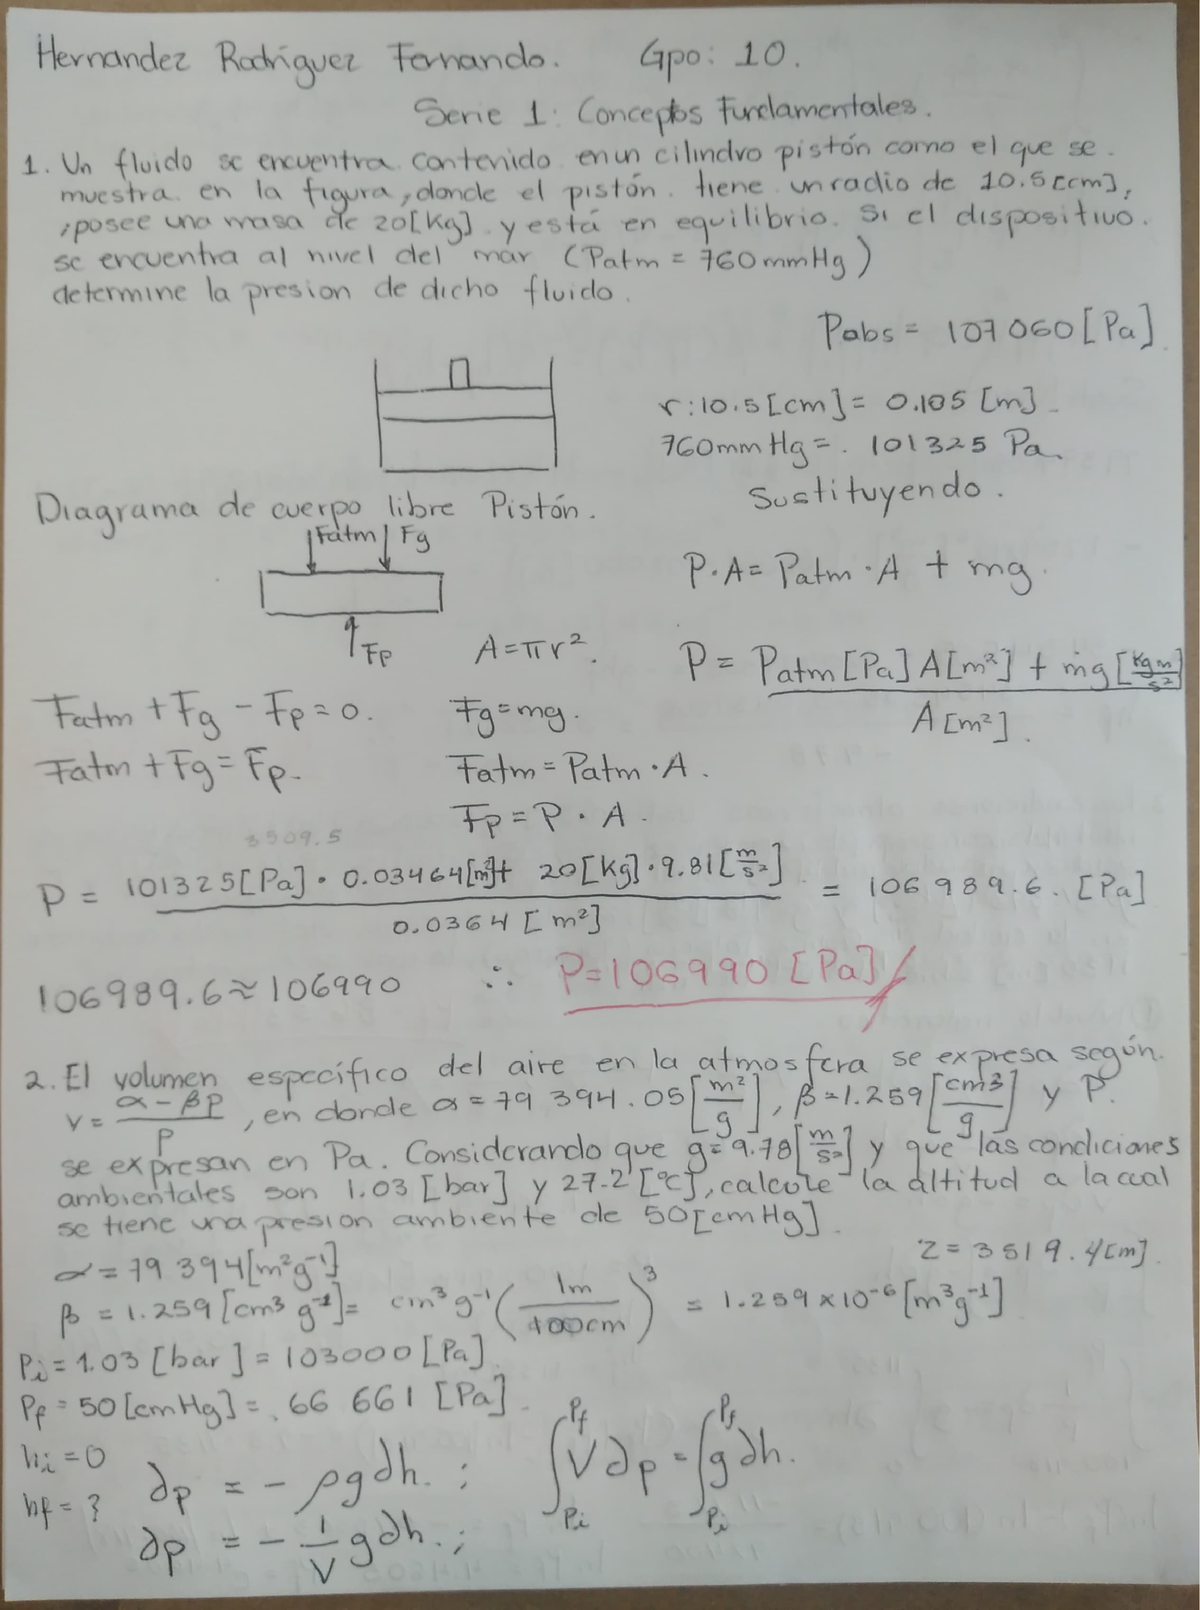 Hernandez Rodríguez Fernando. Gpo: 10.
Serie 1: Conceptos Fundamentales.
1. Un fluido se encuentra contenido en un cilindro pistón como el que se
muestra en la figura, donde el pistón tiene un radio de 10.5 [cm],
, posee una masa de 20[Kg] y está en equilibrio. Si el dispositivo.
se encuentra al nivel del mar (Patm = 760 mmHg)
determine la presion de dicho fluido.
Pabs = 107 060 [Pa]
r: 10.5 [cm] = 0.105 [m].
760 mm Hg = . 101325 Pa.
Sustituyendo.
Diagrama de cuerpo libre Pistón.
Fatm Fg
Fp
P·A = Patm · A + mg.
A = πr².
P = Patm [Pa] A[m²] + mg [Kg m/s²] / A [m²].
Fatm + Fg - Fp = 0. Fg = mg.
Fatm + Fg = Fp. Fatm = Patm · A.
Fp = P · A.
3509.5
P = 101325 [Pa] · 0.03464[m²] + 20 [Kg] · 9.81 [m/s²] / 0.0364 [m²] = 106 989.6. [Pa]
106989.6 ≈ 106990 ∴ P = 106990 [Pa]
2. El volumen específico del aire en la atmosfera se expresa según.
v = α - βp / P, en donde α = 79 394.05 [m²/g], β = 1.259 [cm3/g] y P.
se expresan en Pa. Considerando que g = 9.78 [m/s²] y que las condiciones
ambientales son 1.03 [bar] y 27.2 [°C], calcule la altitud a la cual
se tiene una presion ambiente de 50 [cmHg].
Z = 3519.4 [m].
α = 79 394 [m²g⁻¹]
β = 1.259 [cm³ g⁻¹] = cm³ g⁻¹ (1m / 100cm)³ = 1.259 x 10⁻⁶ [m³g⁻¹]
Pi = 1.03 [bar] = 103000 [Pa].
Pf = 50 [cmHg] = . 66 661 [Pa].
hi = 0
hf = ?
∂p = - ρg∂h. ; ∫ Pf Pi V∂p = ∫ Pf Pi g∂h.
∂p = - 1/V g∂h. ;